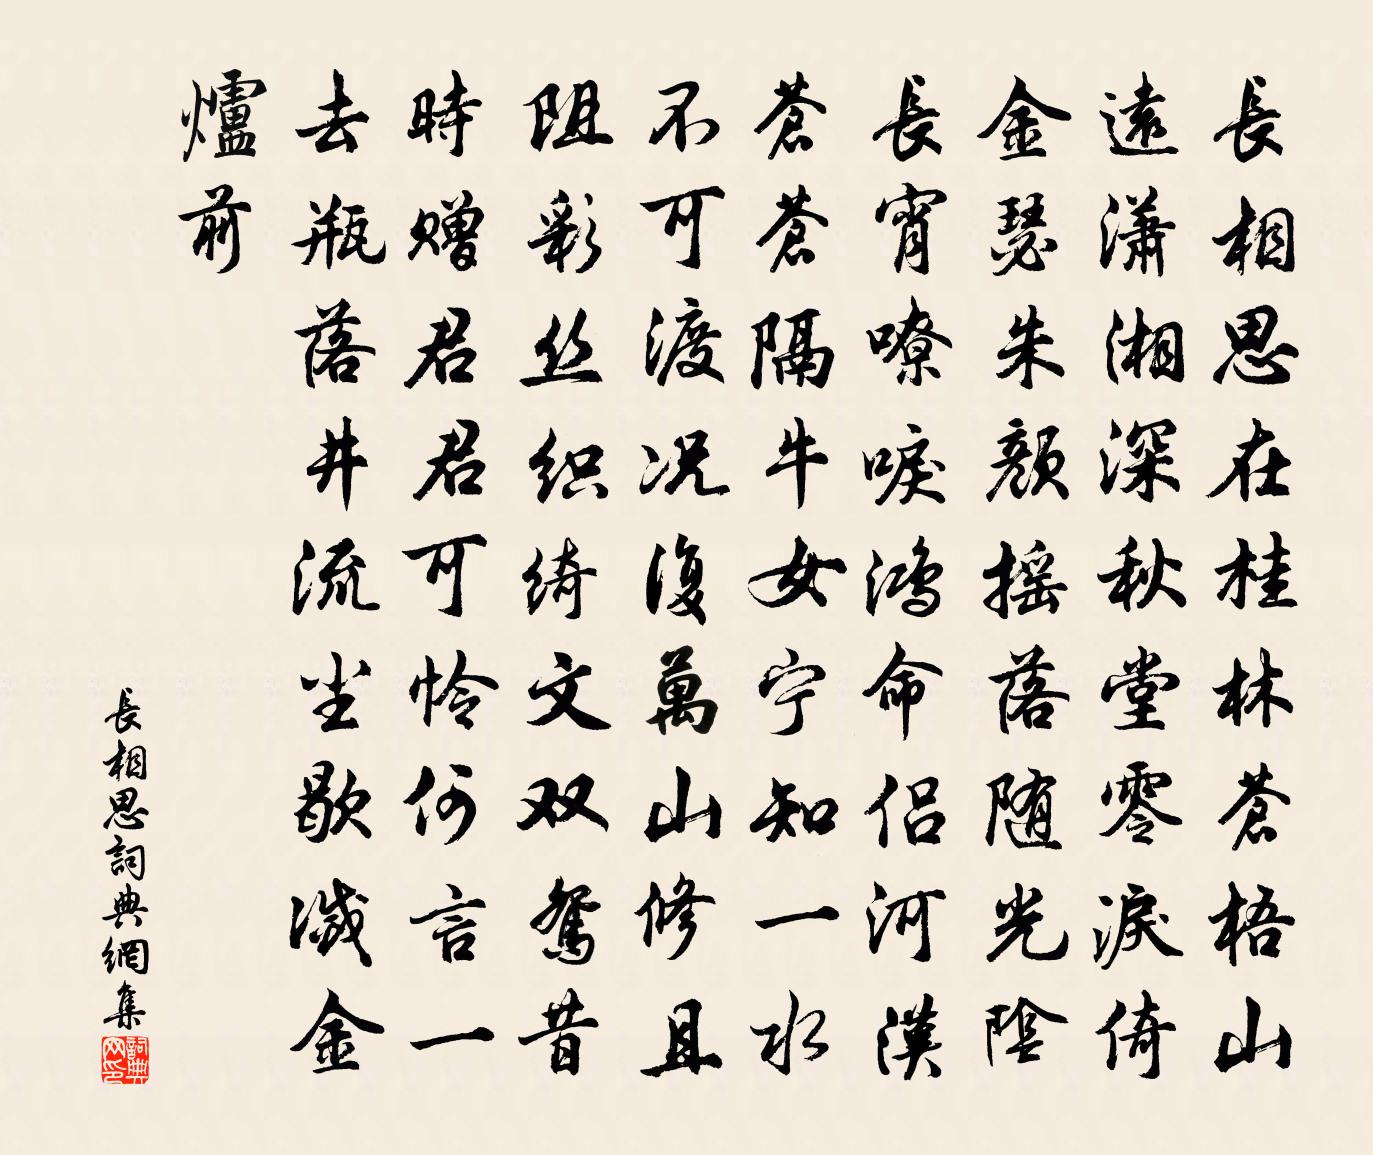 長相思在桂林蒼梧山
遠瀟湘深秋堂零淚倚
金瑟朱顏搖落随光陰
長宵嘹唳鴻命侣河漢
蒼蒼隔牛女宁知一水
不可渡况復萬山修且
阻彩丝织绮文双鴛昔
時赠君君可怜何言一
去瓶落井流尘歇滅金
爐前
長相思詞典網集
詞典网印